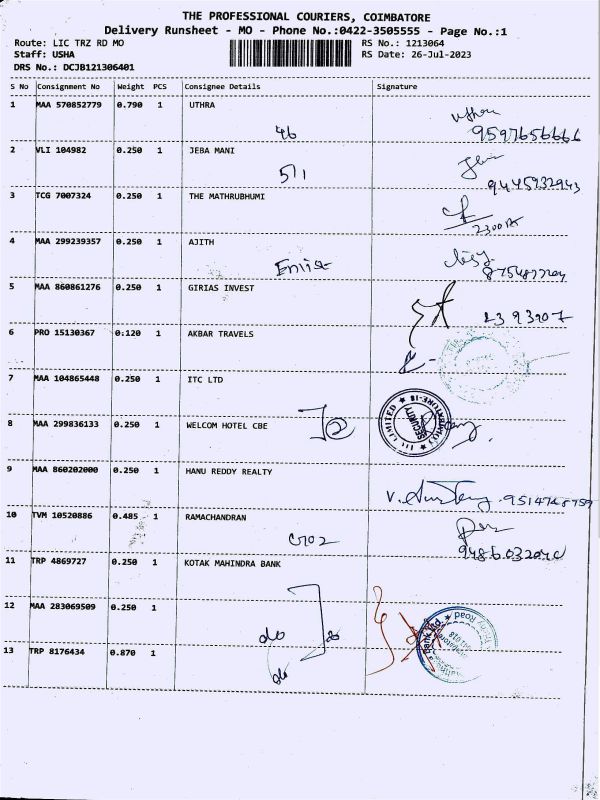 THE PROFESSIONAL COURIERS, COIMBATORE
Delivery Runsheet - MO - Phone No.:0422-3505555 - Page No.:1
Route: LIC TRZ RD MO
RS No.: 1213064
Staff: USHA
RS Date: 26-Jul-2023
DRS No.: DCJB121306401
S No Consignment No Weight PCS Consignee Details Signature
1 MAA 570852779 0.790 1 UTHRA
46 9597656666
2 VLI 104982 0.250 1 JEBA MANI
511 9445932943
3 TCG 7007324 0.250 1 THE MATHRUBHUMI
4 MAA 299239357 0.250 1 AJITH
5 MAA 860861276 0.250 1 GIRIAS INVEST
2393907
6 PRO 15130367 0:120 1 AKBAR TRAVELS
7 MAA 104865448 0.250 1 ITC LTD
8 MAA 299836133 0.250 1 WELCOM HOTEL CBE
LIMITED ★ COIMBATORE-18
SECURITY
9 MAA 860202000 0.250 1 HANU REDDY REALTY
10 TVM 10520886 0.485 1 RAMACHANDRAN
11 TRP 4869727 0.250 1 KOTAK MAHINDRA BANK
12 MAA 283069509 0.250 1
do
13 TRP 8176434 0.870 1
do